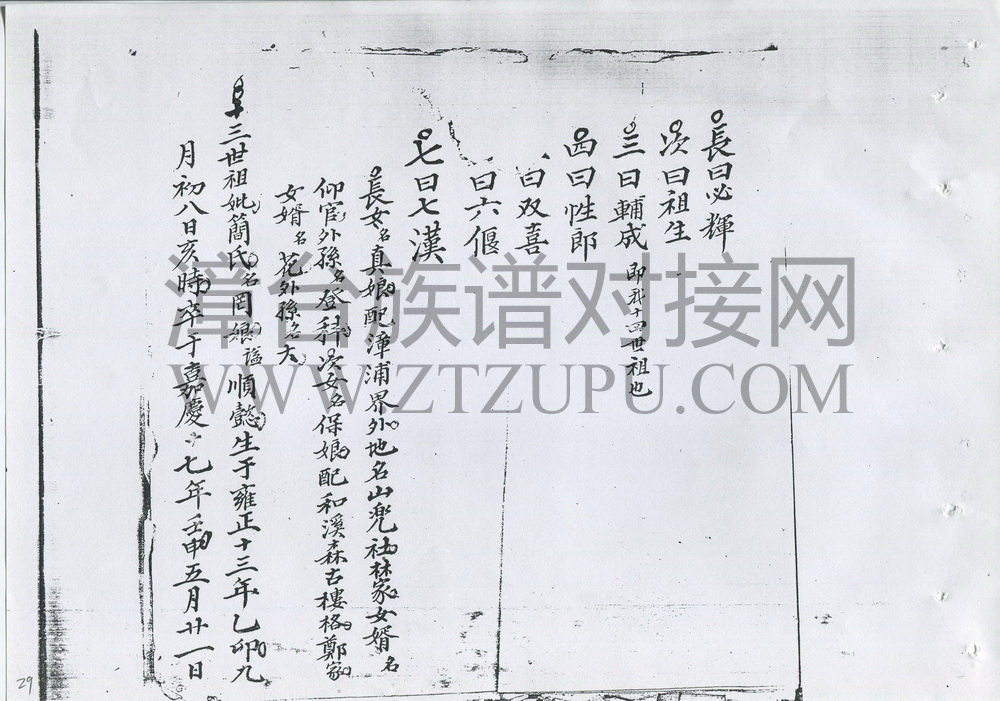 長曰必輝
次曰祖生
三曰輔成 即我十四世祖也
四曰性郎
曰双喜
曰六偃
七曰七漢
長女名真娘配漳浦界外地名山兜社林家女婿名
仰宦外孫名登科次女名保娘配和溪森古樓格鄭家
女婿名花外孫名大
三世祖妣簡氏名罔娘謚順懿生于雍正十三年乙卯九
月初八日亥時卒于嘉慶十七年壬申五月廿一日
漳台族谱对接网
WWW.ZTZUPU.COM
29